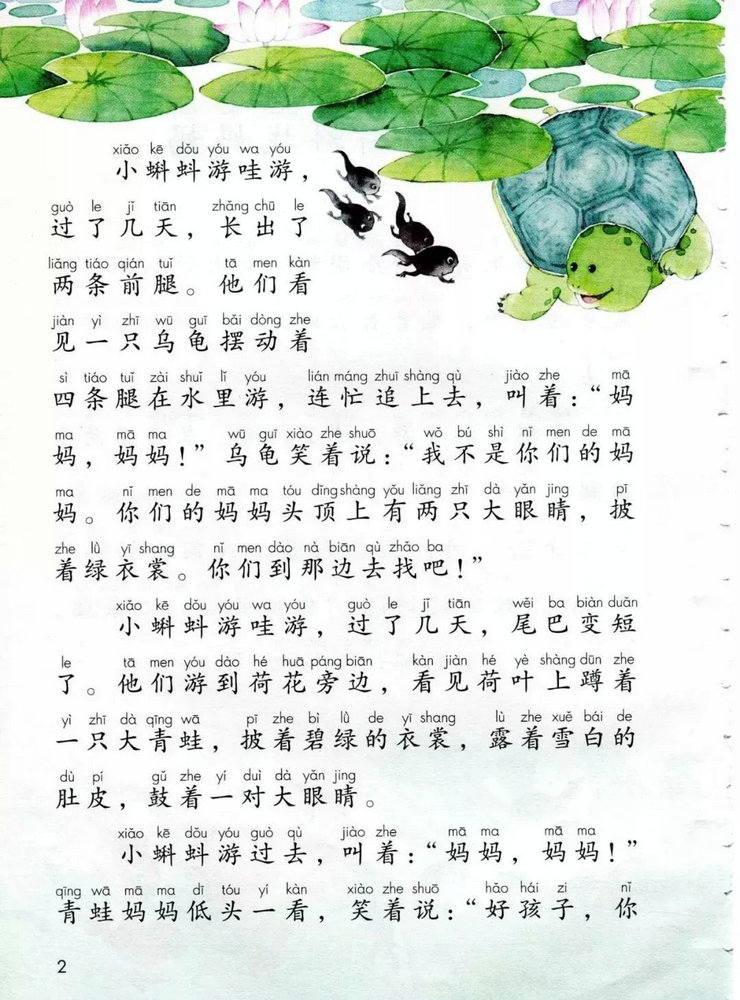 xiǎo kē dǒu yóu wa yóu
小蝌蚪游哇游，
guò le jǐ tiān zhǎng chū le
过了几天，长出了
liǎng tiáo qián tuǐ tā men kàn
两条前腿。他们看
jiàn yì zhī wū guī bǎi dòng zhe
见一只乌龟摆动着
sì tiáo tuǐ zài shuǐ lǐ yóu lián máng zhuī shàng qù jiào zhe mā
四条腿在水里游，连忙追上去，叫着：“妈
ma mā ma wū guī xiào zhe shuō wǒ bú shì nǐ men de mā
妈，妈妈！”乌龟笑着说：“我不是你们的妈
ma nǐ men de mā ma tóu dǐng shàng yǒu liǎng zhī dà yǎn jing pī
妈。你们的妈妈头顶上有两只大眼睛，披
zhe lǜ yī shang nǐ men dào nà biān qù zhǎo ba
着绿衣裳。你们到那边去找吧！”
xiǎo kē dǒu yóu wa yóu guò le jǐ tiān wěi ba biàn duǎn
小蝌蚪游哇游，过了几天，尾巴变短
le tā men yóu dào hé huā páng biān kàn jiàn hé yè shàng dūn zhe
了。他们游到荷花旁边，看见荷叶上蹲着
yì zhī dà qīng wā pī zhe bì lǜ de yī shang lù zhe xuě bái de
一只大青蛙，披着碧绿的衣裳，露着雪白的
dù pí gǔ zhe yí duì dà yǎn jing
肚皮，鼓着一对大眼睛。
xiǎo kē dǒu yóu guò qù jiào zhe mā ma mā ma
小蝌蚪游过去，叫着：“妈妈，妈妈！”
qīng wā mā ma dī tóu yí kàn xiào zhe shuō hǎo hái zi nǐ
青蛙妈妈低头一看，笑着说：“好孩子，你
2